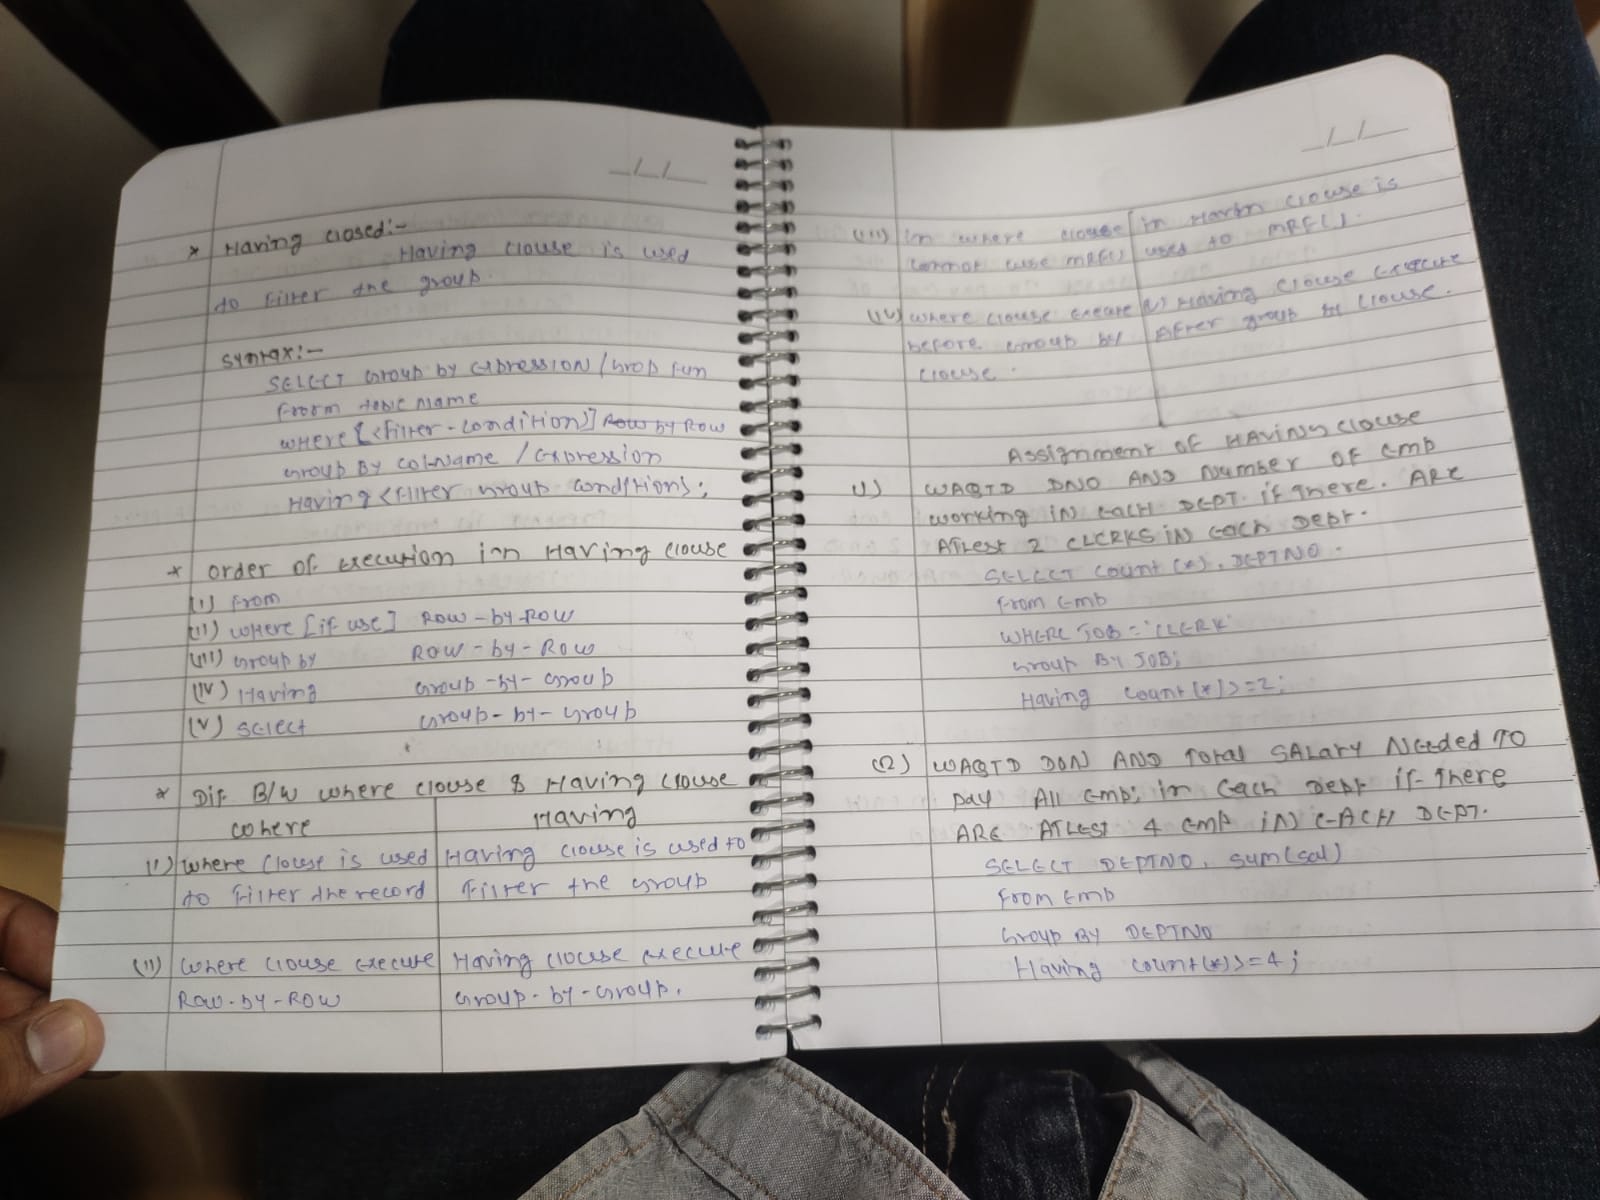 * Having closed:-
Having clouse is used
to filter the group.
syntax:-
SELECT Group by expression / Grop fun
From table name
where [<filter-condition>] Row by Row
Group By col-Name / Expression
Having <filter Group conditions;
* order of execution inn Having clouse
(I) From
(II) where [if use] Row-by-Row
(III) Group by Row-by-Row
(IV) Having Group-by-Group
(V) select Group-by-Group
* Dif B/w where clouse & Having clouse
where Having
(I) where clouse is used Having clouse is used to
to Filter the record Filter the Group
(II) where clouse execute Having clouse execute
Row-by-Row Group-by-Group.
(III) In where clouse in Havin clouse is
cannot use MRF() used to MRF().
(IV) where clouse execute IV) Having clouse execute
before Group by After group by clouse.
clouse.
Assignment of HAving clouse
1) WAQTD DNO AND Number OF Emp
working IN EACH DEPT. if there. ARE
ATlest 2 CLERKS IN Each Dept.
SELECT count(*), DEPTNO.
From Emp
WHERE JOB = 'CLERK'
Group By JOB;
Having count(*)>=2;
(2) WAQTD DON AND Total SALary Needed TO
pay All emp; in Each Dept if There
ARE ATLEST 4 EMP IN EACH DEPT.
SELECT DEPTNO, sum(sal)
From Emp
Group By DEPTNO
Having count(*)>=4;